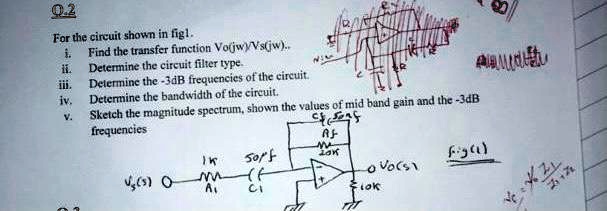 Q.2
For the circuit shown in fig1.
i. Find the transfer function Vo(jw)/Vs(jw)..
ii. Determine the circuit filter type.
iii. Determine the -3dB frequencies of the circuit.
iv. Determine the bandwidth of the circuit.
v. Sketch the magnitude spectrum, shown the values of mid band gain and the -3dB
frequencies
Rf
20K
1K
50Pf
Vs(s)
R1
C1
Vo(s)
10K
fig(1)